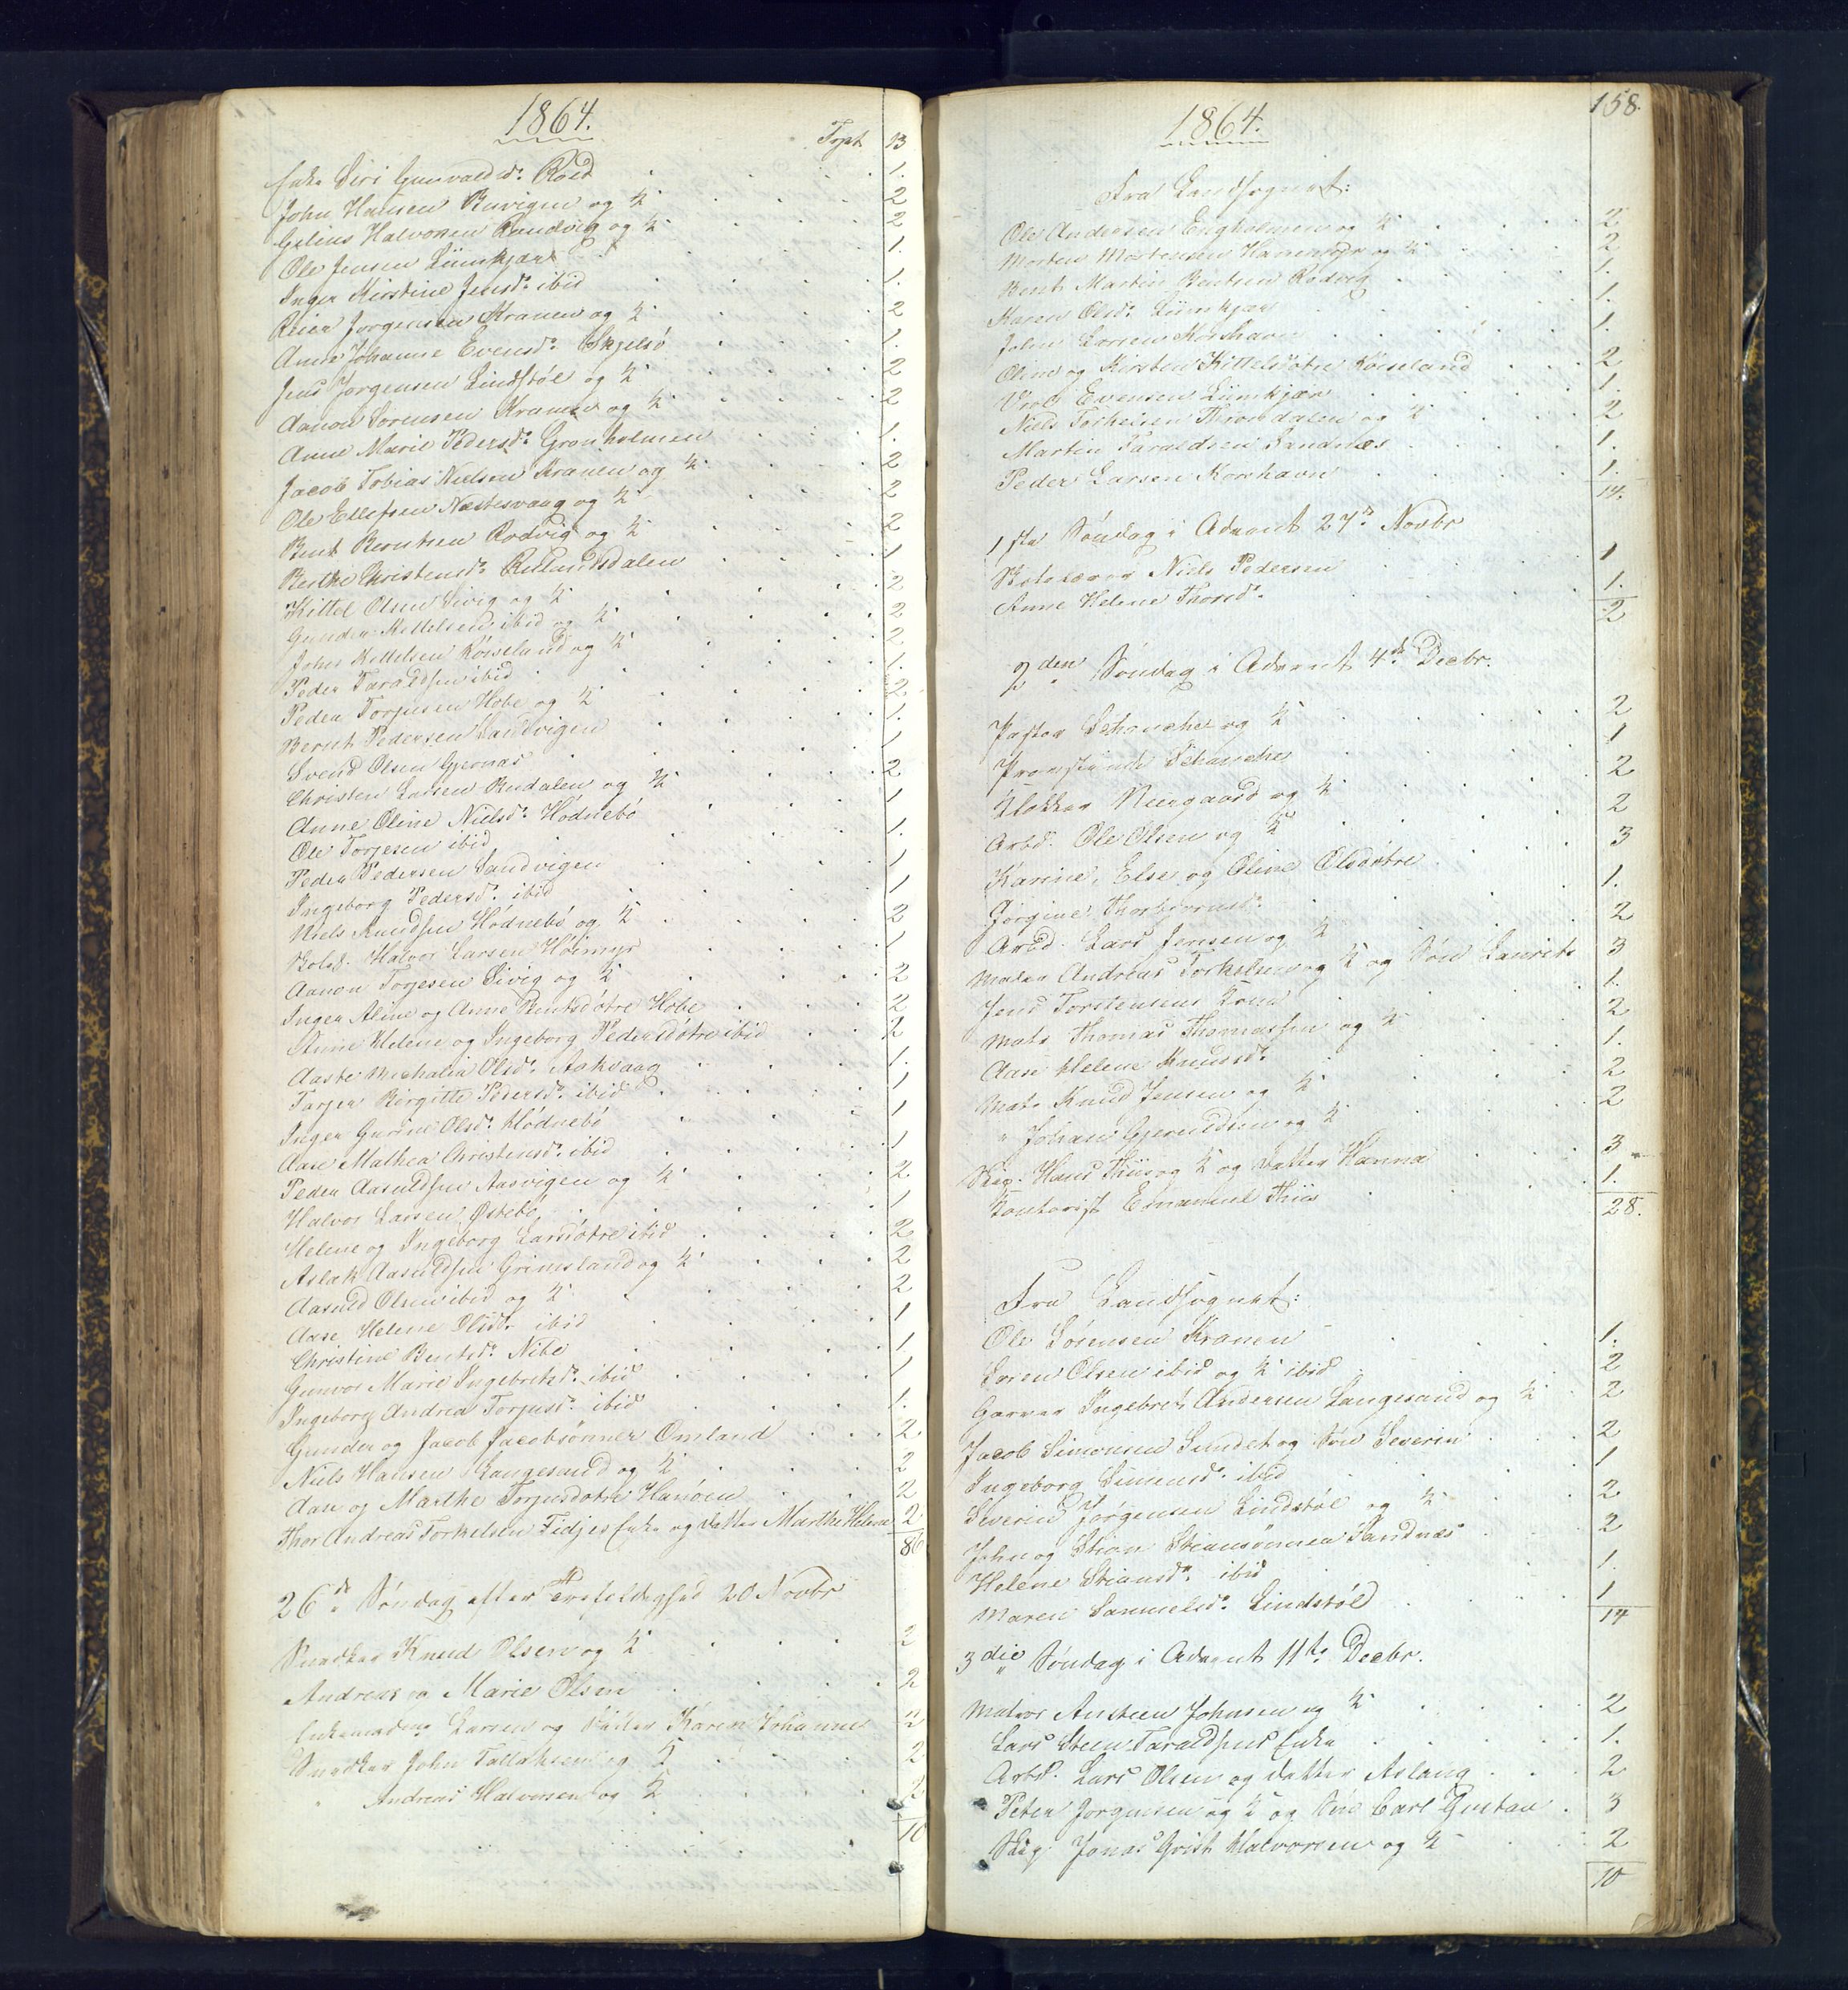 1864.
Tspt. 13
Enke Siri Gunvaldsd. Røed 1.
John Hansen Buvigen og K. 2
Gelius Halvorsen Randvig og K. 2
Ole Jensen Liimkjær 1.
Inger Kirstine Jensd. ibid 1.
Reier Jørgensen Kranen og K. 2
Anne Johanne Evensd. Skjelsø 1.
Jens Jørgensen Lindstøl og K. 2
Aanon Sørensen Kranen og K. 2
Anne Marie Pedersd. Grønholmen 1.
Jacob Tobias Nielsen Kranen og K. 2
Ole Ellefsen Næstesvaag og K. 2
Bent Berntsen Rødvig og K. 2
Berthe Christensd. 1
Kittel Olsen Sivig og K. 2
Gunder Kittelsen ibid og K. 2
John Kittelsen Röiseland og K. 2
Peder Taraldsen ibid 1.
Peder Torjusen Hobe og K. 2
Bernt Pedersen Sandvigen 1.
Svend Olsen Gjernæs 1
Christen Larsen Rudalen og K. 2
Anne Oline Nielsd. Hödnebö 1
Ole Torjesen ibid 1.
Peder Pedersen Sandvigen 1
Ingeborg Pedersd. ibid 1
Niels Knudsen Hödnebö og K. 2
Skolel. Halvor Larsen Höimyr 1
Aanon Torjesen Sivig og K. 2
Inger Aline og Anne Bentsdötre Hobe 2
Anne Helene og Ingeborg Pedersdötre ibid 2
Aaste Michalia Olsd. Aakvaag 1.
Torjer Birgitte Pedersd. ibid 1
Inger Gurine Olsd. Hödnebö 1
Aase Mathea Christensd. ibid 1
Peder Aasuldsen Aasvigen og K. 2
Halvor Larsen Østebö 1
Helene og Ingeborg Larsdötre ibid 2
Aslak Aasuldsen Grimsland og K. 2
Aasuld Olsen ibid og K. 2
Aase Helene Olsd. ibid 1
Christine Bentsd. Nibe 1
Gunvor Marie Ingebretsd. ibid 1
Ingeborg Andrea Torjusd. ibid 1.
Gunder og Jacob Jacobsönner Omland 2
Niels Hansen Langesund og K. 2
Aase og Marthe Torjusdötre Hanöen 2
Thor Andreas Torkelsen Tidjes Enke og Datter Marthe Helene 2
86
26de Söndag efter Trefoldighed 20 Novbr
Snedker Knud Olsen og K. 2
Andreas og Marie Olsen 2
Enkemadme Larsen og Datter Karen Johanne 2
Snedker John Tallaksen og K. 2
" Andreas Halvorsen og K. 2
10
158.
1864.
Fra Landsognet:
Ole Andersen Engholmen og K. 2.
Morten Mortensen og K. 2
Bent Martin Bentsen Rødvig 1.
Karen Olsd. Liimkjær 1.
John Larsen Korshavn 1.
Oline og Kirsten Kittelsdøtre Röiseland 2
Evensen Liimkjær 1.
Niels Torkelsen og K. 2
Martin Taraldsen Sandnæs 1.
Peder Larsen Korshavn 1.
14.
1ste Søndag i Advent 27de Novbr
Skolelærer Niels Pedersen 1
Anne Helene Thorsd. 1.
2
2den Søndag i Advent 4de Decbr.
Pastor Schanche og K. 2
Provstinde Schanche 1
Klokker Neergaard og K. 2
Arbd. Ole Olsen og K. 2
Karine, Else og Oline Olsdøtre 3
Jørgine Thorbjørnsd. 1.
Arbd. Lars Jensen og K. 2
Maler Andreas Torkelsen og K. og Søn Laurits 3
Jens Torstensens Kone 1.
Mats Thomas Thomassen og K. 2
Aase Helene Knudsd. 1.
Mats Knud Jensen og K. 2
" Johan Gjeruldsen og K. 2
Skip. Hans Thiis og K. og Datter Hanna 3
Kontorist Emanuel Thiis 1.
28.
Fra Landsognet:
Ole Sørensen Kranen 1.
Søren Olsen ibid og K. ibid 2
Garver Ingebret Andersen Langesund og K. 2
Jacob Simonsen Sundet og Søn Severin 2
Ingeborg Simonsd. ibid 1
Severin Jørgensen Lindstøl og K. 2
John og Stian Stiansønner Sandnæs 2
Helene Stiansd. ibid 1.
Maren Samuelsd. Lindstøl 1
14
3die Søndag i Advent 11te Decbr.
Matros Austeen Johnsen og K. 2
Lars Steen Taraldsens Enke 1.
Arbd. Lars Olsen og Datter Aslaug 2
Peter Jørgensen og K. og Søn Carl Gustav 3
Skip. Jonas Qvist Halvorsen og K. 2
10